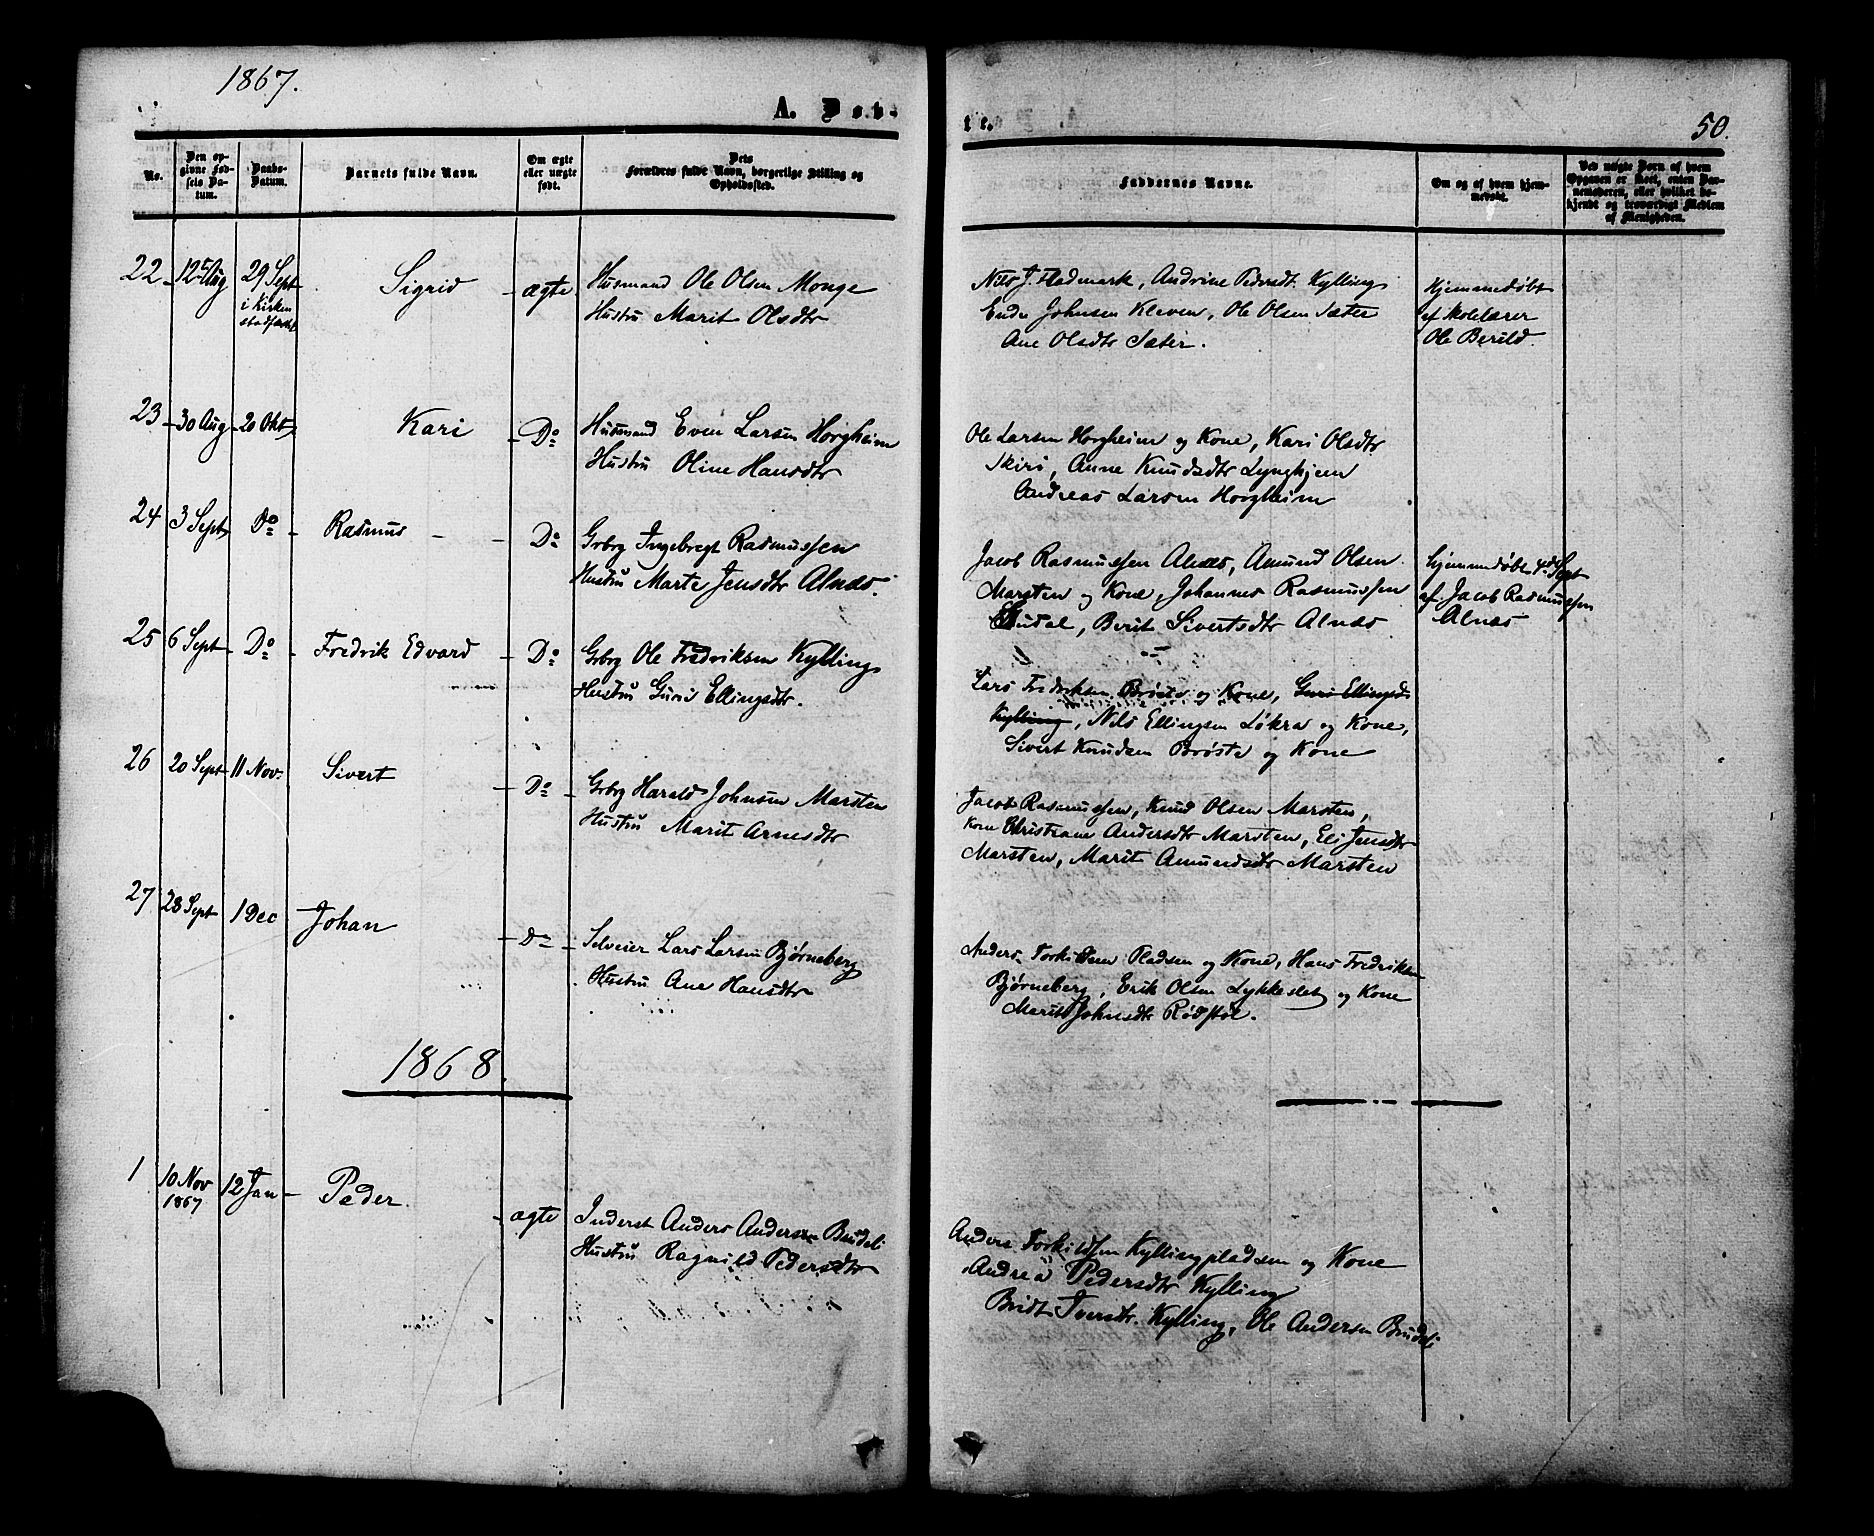 1867.
A. Døb-
te.
50.
No.
Den op-
givne Fød-
sels Da-
tum.
Daabs-
Datum.
Barnets fulde Navn.
Om ægte
eller uægte
født.
Dets
Forældres fulde Navn, borgerlige Stilling og
Opholdssted.
Faddernes Navne.
Om og af hvem hjem-
medøbt.
Ved uægte Børn af hvem
Opgaven er skeet, enten Bar-
nemoderen, eller hvilket be-
kjendt og troværdigt Medlem
af Menigheden.
22 12 Aug 29 Sept Sigrid ægte Husmand Ole Olsen Monge
i Kirken
stadfæstet
Hustru Marit Olsdtr
Nils J. Fladmark, Andrine Pedersdt Kylling
Endre Johnsen Kleven, Ole Olsen Sæter
Ane Olsdtr Sæter.
Hjemmedøbt
af Skolelærer
Ole Berild.
23 30 Aug 20 Okt Kari Do Husmand Even Larsen Horgheim
Hustru Oline Hansdtr
Ole Larsen Horgheim og Kone, Kari Olsdtr
Skiri, Anne Knudsdtr Lynghjem
Andreas Larsen Horgheim
24 3 Sept Do Rasmus Do Grbrg Ingebregt Rasmussen
Hustru Marte Jensdtr Alnæs.
Jacob Rasmussen Alnæs, Amund Olsen
Marsten og Kone, Johannes Rasmussen
Berit Sivertsdtr Alnæs
Hjemmedøbt 4de Sept
af Jacob Rasmussen
Alnæs
25 6 Sept Do Fredrik Edvard Do Grbrg Ole Fredriksen Kylling
Hustru Guri Ellingsdtr.
Lars Fredriksen Brøste og Kone, Guri Ellingsd
Kylling, Nils Ellingsen Løkra og Kone,
Sivert Knudsen Brøste og Kone
26 20 Sept 11 Nov. Sivert Do Grbrg Harald Johnsen Marsten
Hustru Marit Arnesdtr
Jacob Rasmussen, Knud Olsen Marsten,
Kone Christiane Andersdtr Marsten, Eli Jensdtr
Marsten, Marit Amundsdtr Marsten
27 28 Sept 1 Dec Johan Do Selveier Lars Larsen Bjørneberg
Hustru Ane Hansdtr
Anders Torkildsen Pladsen og Kone, Hans Fredriksen
Bjørneberg, Erik Olsen Lykkeslet og Kone
Marit Johnsdtr Rødstøl.
1868.
1 10 Nov 1867 12 Jan Peder ægte Inderst Anders Andersen Brudeli
Hustru Ragnild Pedersdtr
Anders Torkildsen Kyllingpladsen og Kone
Andrea Pedersdtr Kylling
Bridt Iversdtr. Kylling, Ole Andersen Brudeli